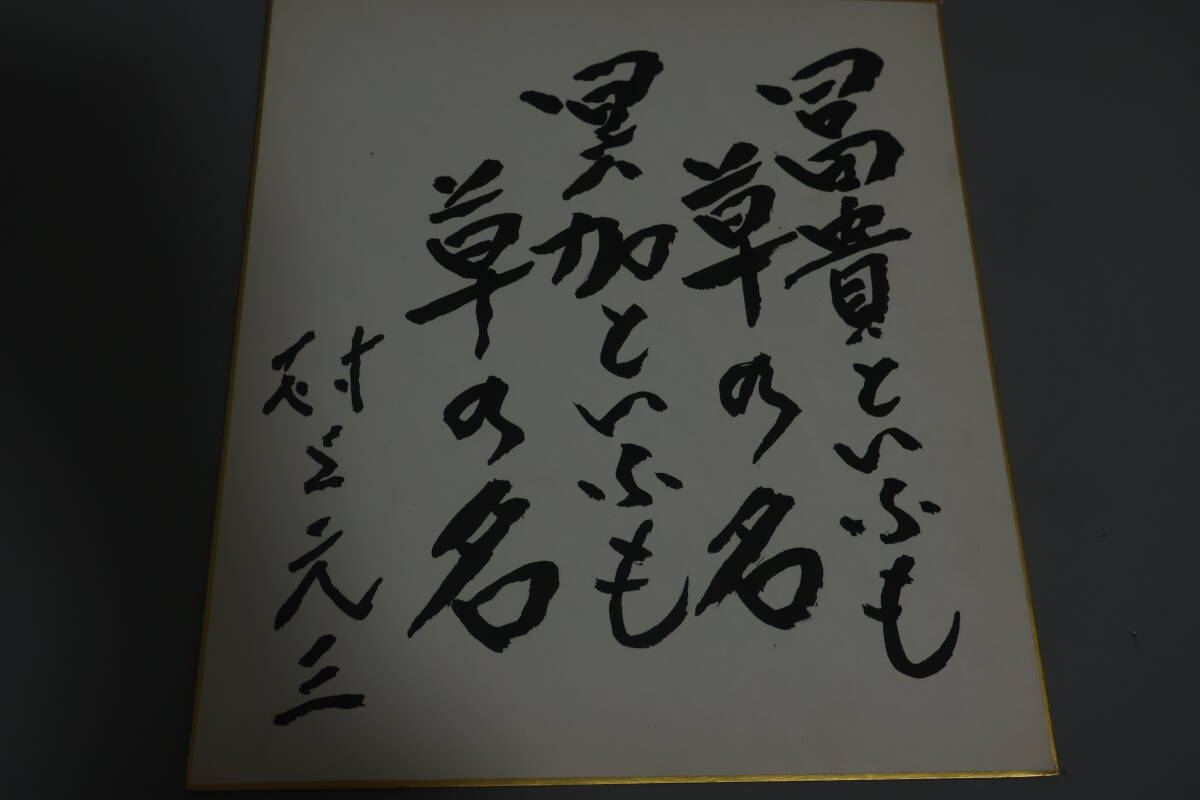 冨貴といふも
草の名
冥加といふも
草の名
村上元三